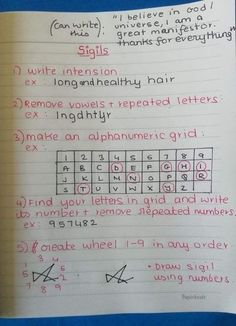 (can write
this).
"I believe in God /
universe, I am a
great manifestor.
thanks for everything"
Sigils
1) write intension
ex: long and healthy hair
2) Remove vowels + repeated letters:
ex: lngdhtyr
3) make an alphanumeric grid:
ex:
1 2 3 4 5 6 7 8 9
A B C D E F G H I
J K L M N O P Q R
S T U V W X Y Z
4) Find your letters in grid and write
its number + remove repeated numbers
ex: 957482
5) Create wheel 1-9 in any order
3 4
5
6
1
2
7 8 9
• Draw sigil
using numbers